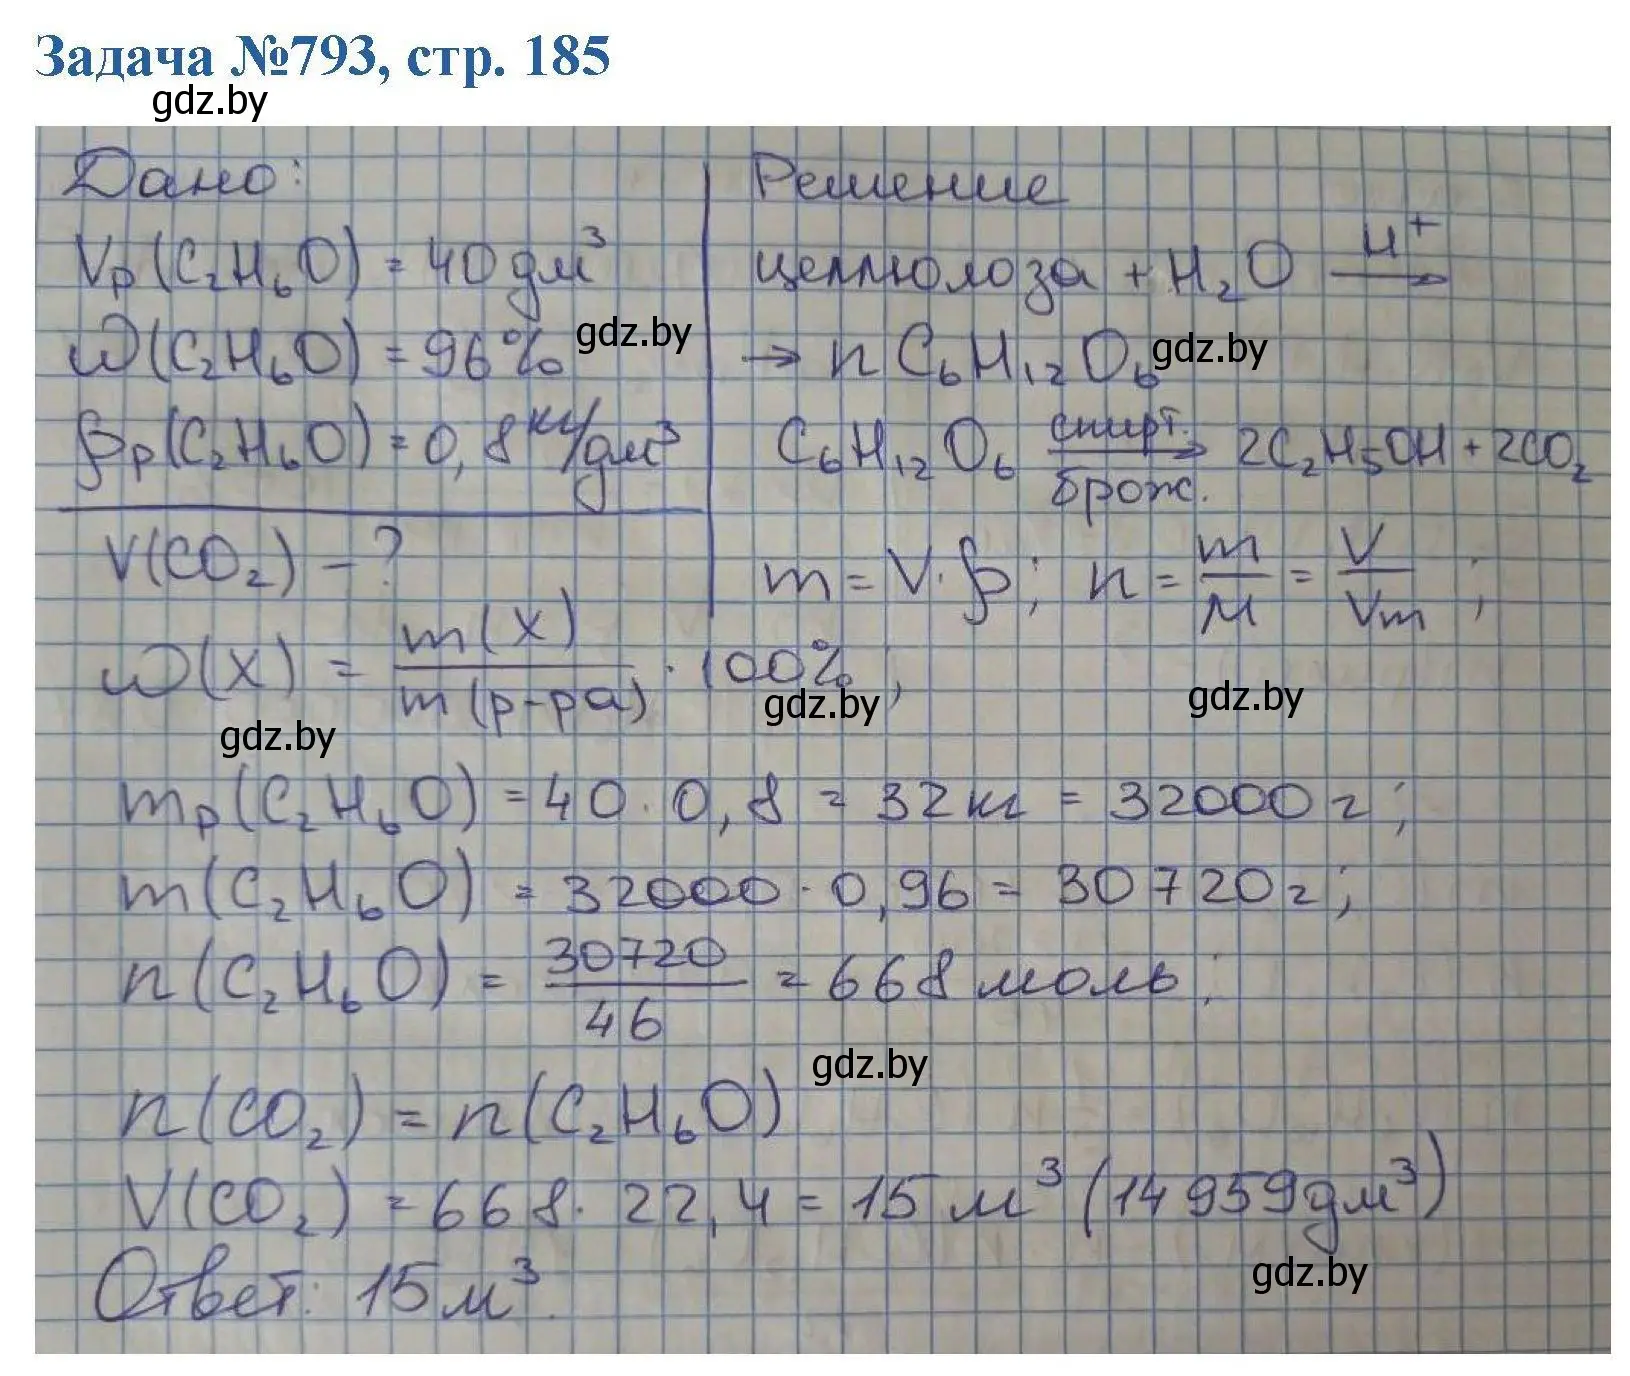 Задача №793, стр. 185
gdz.by
Дано:
Vр(C₂H₆O) = 40 дм³
ω(C₂H₆O) = 96% gdz.by
ρр(C₂H₆O) = 0,8 кг/дм³
V(CO₂) - ?
Решение
целлюлоза + H₂O H⁺→
→ n C₆H₁₂O₆ gdz.by
C₆H₁₂O₆ спирт. брож. → 2C₂H₅OH + 2CO₂
m = V · ρ; n = m/M = V/Vm ;
ω(X) = m(X)/m(р-ра) · 100% ;
gdz.by gdz.by gdz.by
mр(C₂H₆O) = 40 · 0,8 = 32 кг = 32000 г ;
m(C₂H₆O) = 32000 · 0,96 = 30720 г ;
n(C₂H₆O) = 30720/46 = 668 моль ;
gdz.by
n(CO₂) = n(C₂H₆O)
V(CO₂) = 668 · 22,4 = 15 м³ (14959 дм³)
gdz.by
Ответ: 15 м³.